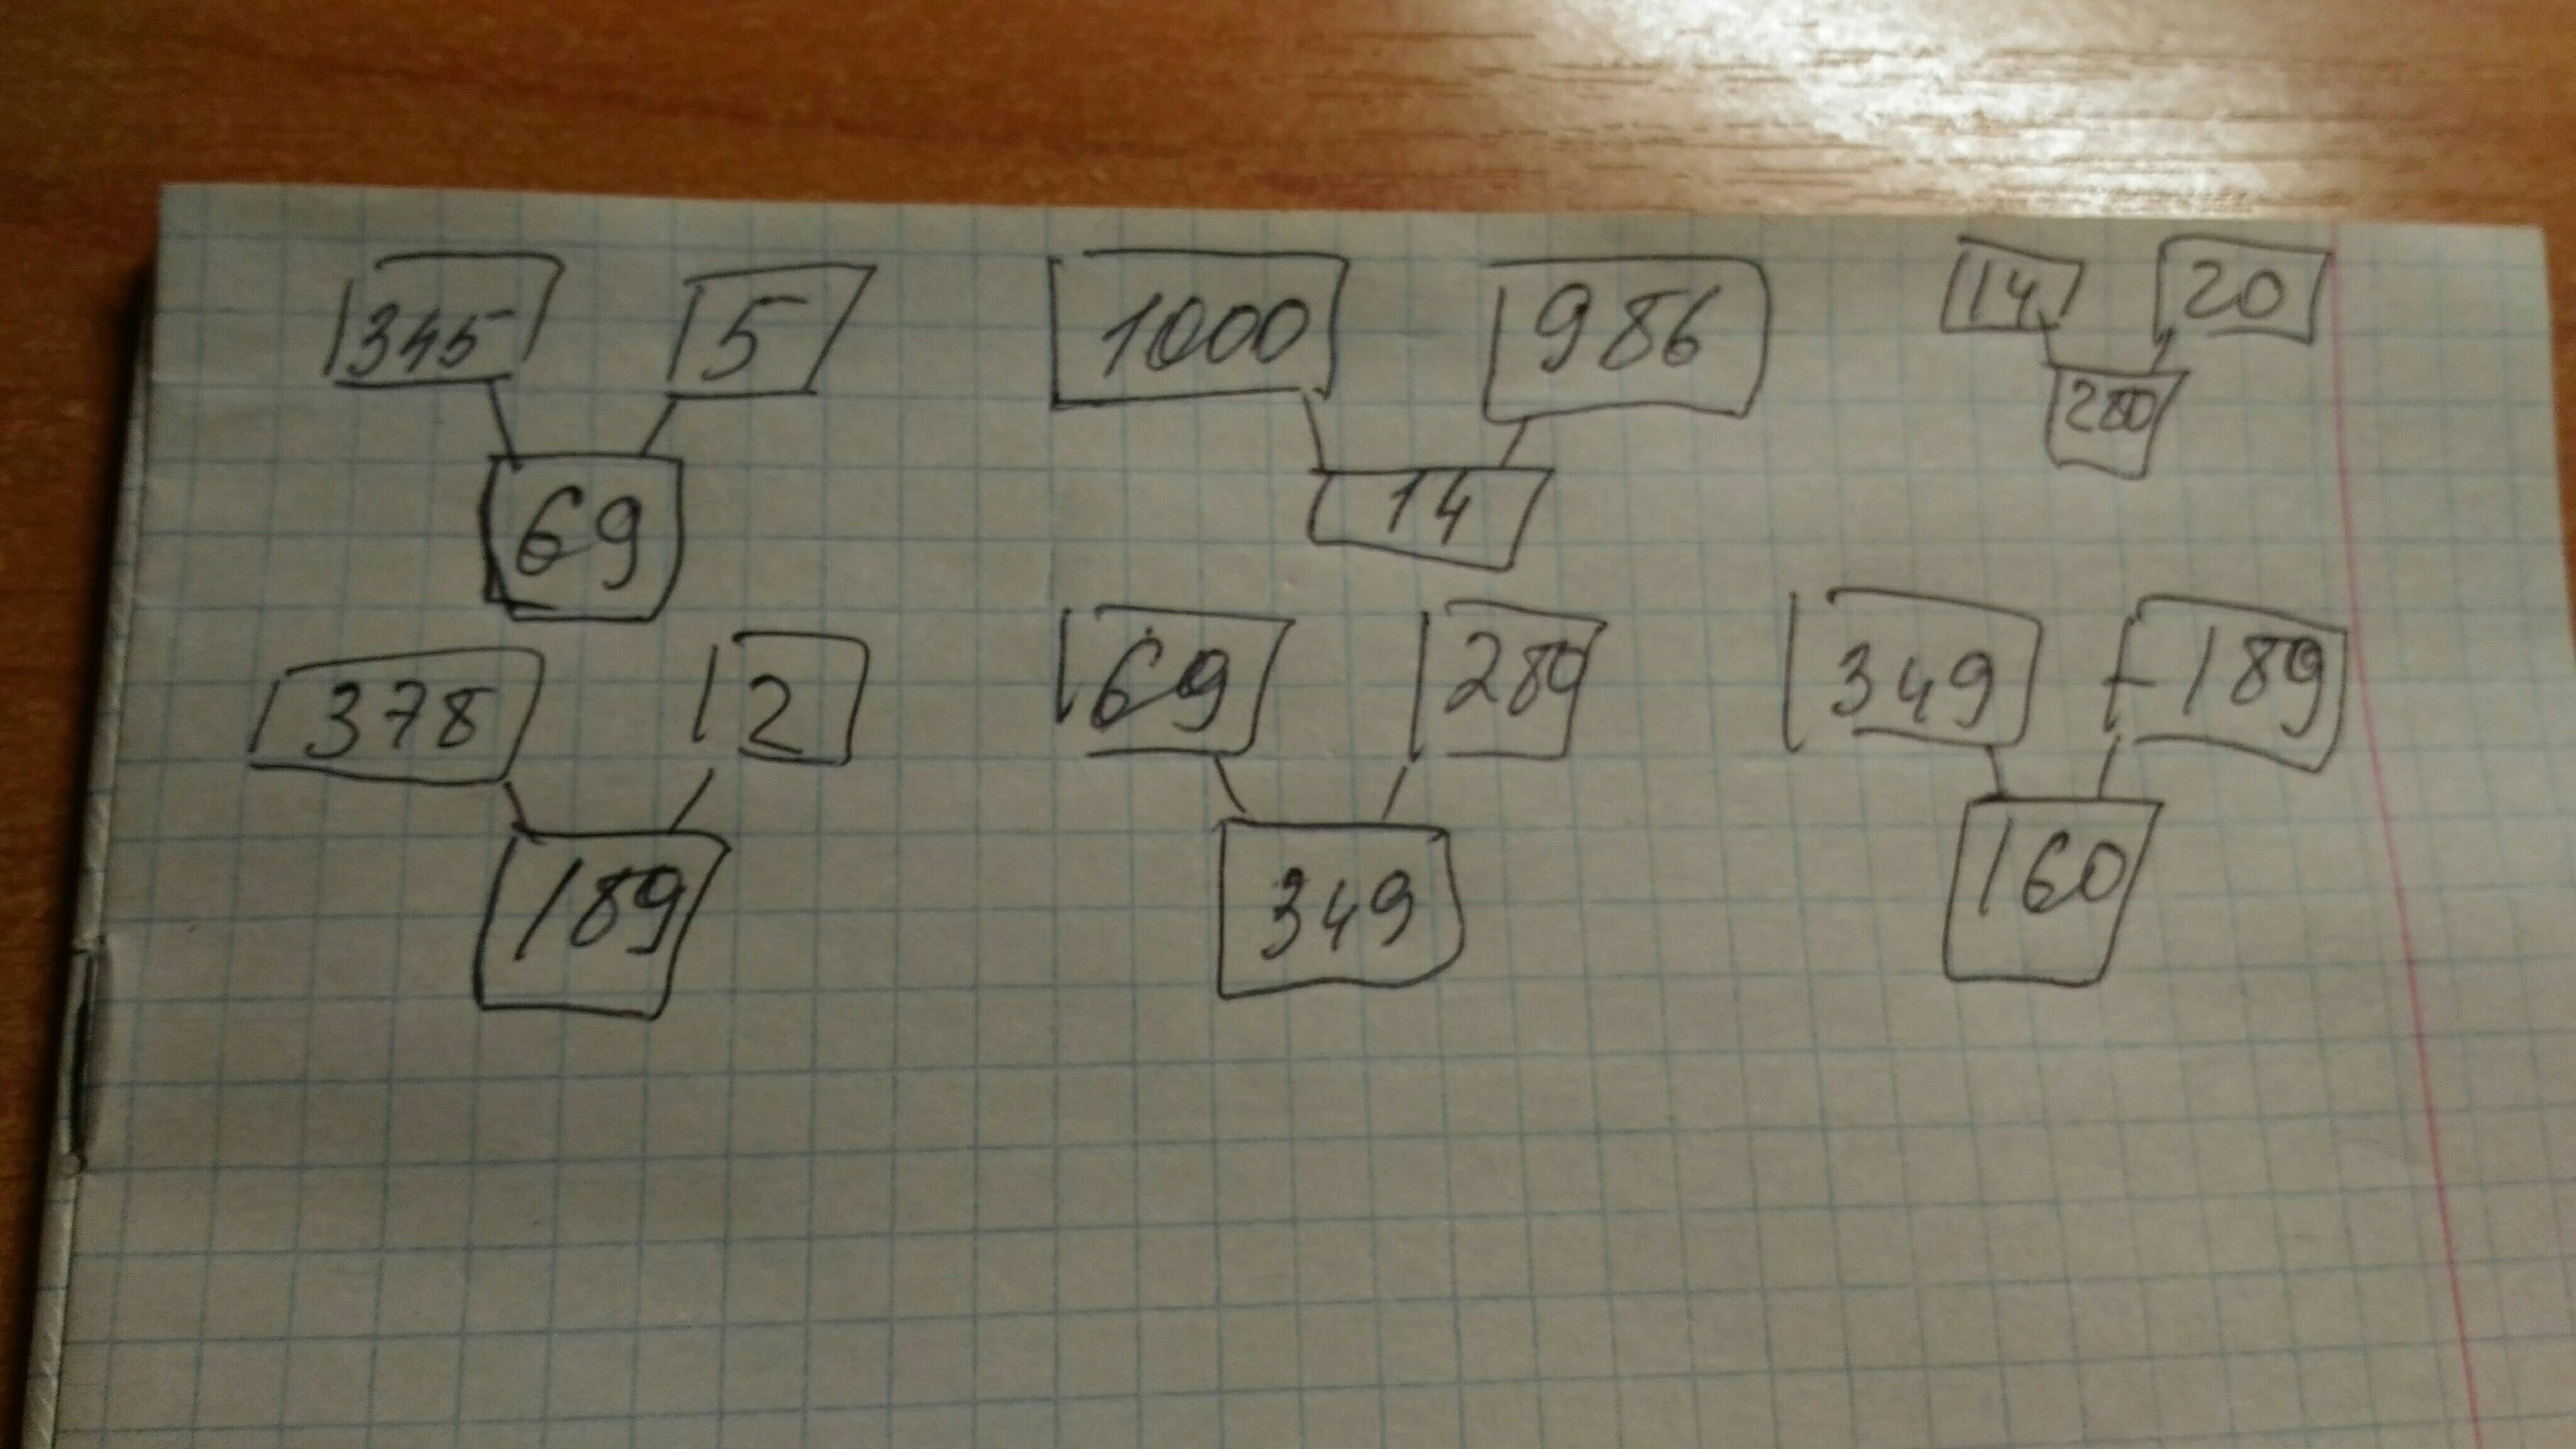 345 5 1000 986 14 20
69 14 280
378 2 69 289 349 - 189
189 349 160